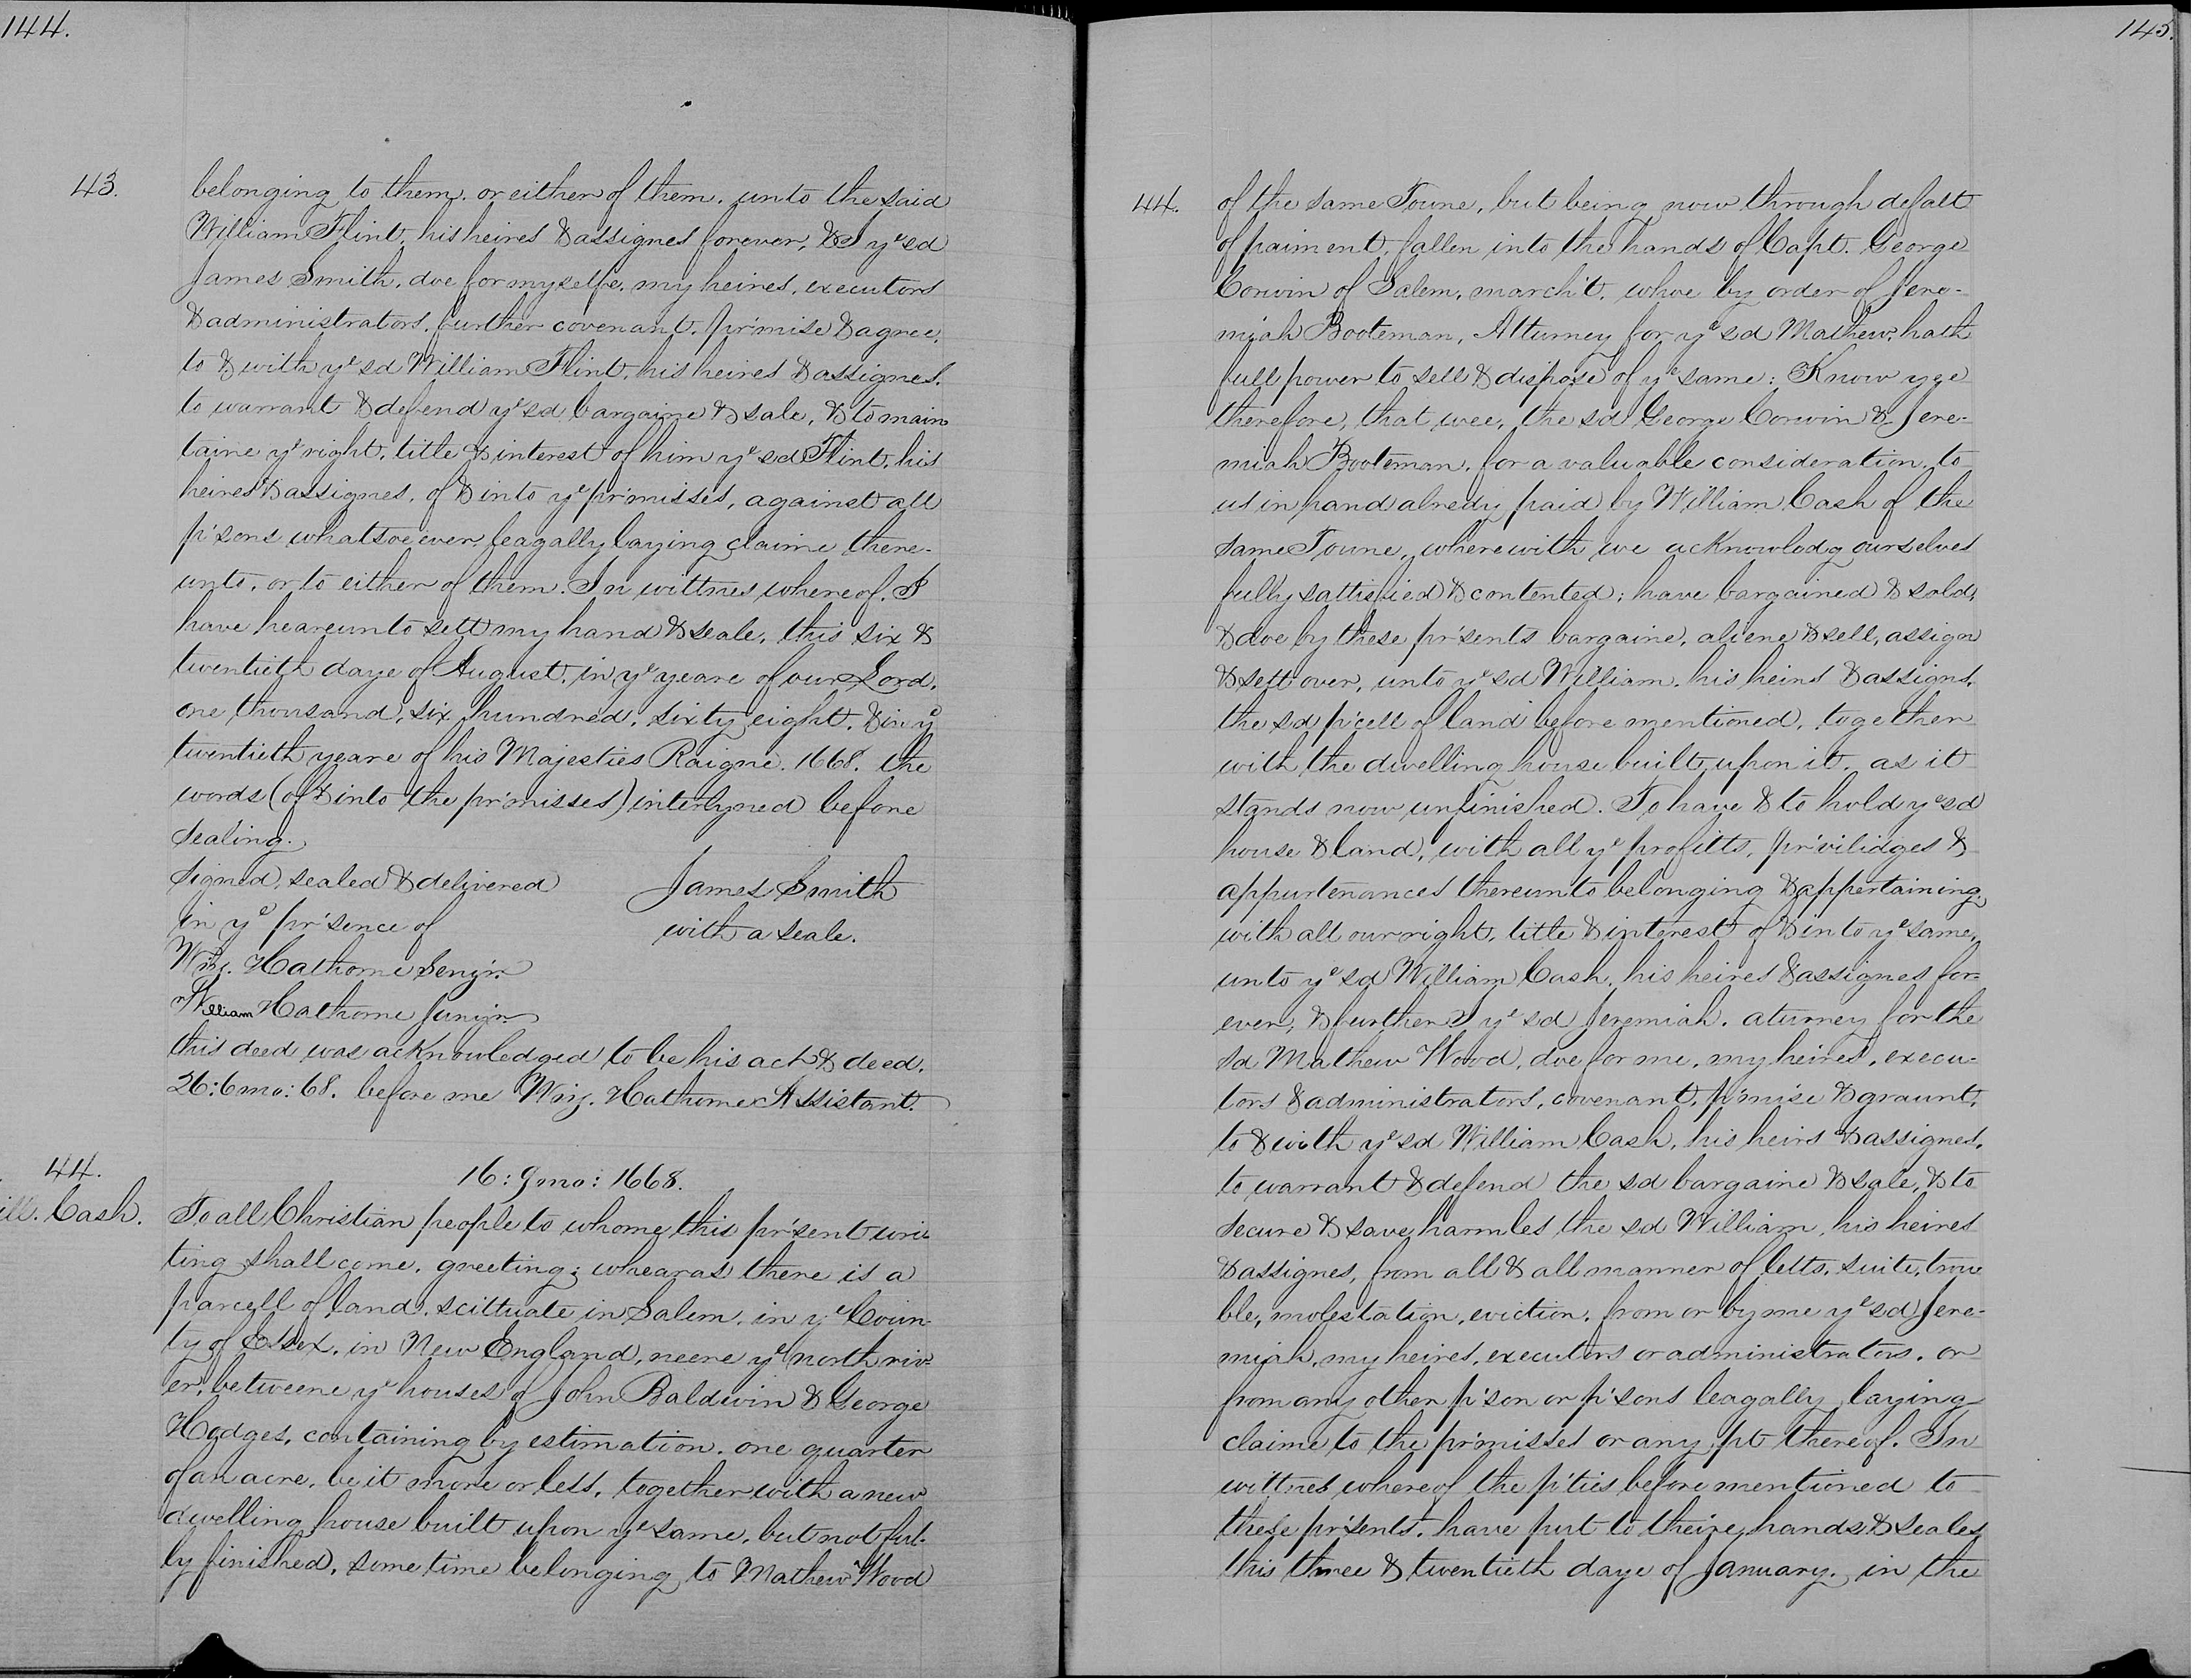 144.
43.
belonging to them, or either of them, unto the said
William Flint, his heires & assignes forever, & I yᵉ sd
James Smith, doe for myselfe, my heires, executors
& administrators, further covenant, pr'mise & agree,
to & with yᵉ sd William Flint, his heires & assignes,
to warrant & defend yᵉ sd bargaine & sale, & to main
taine yᵉ right, title & interest of him yᵉ sd Flint, his
heires & assignes, of & into yᵉ pr'misses, against all
p'sons whatsoeiever leagally laying claime there-
unto, or to either of them. In wittnes whereof, I
have heareunto sett my hand & seale, this six &
twentieth daye of August, in yᵉ yeare of our Lord,
one thousand, six hundred, sixty eight, & in yᵉ
twentieth yeare of his Majesties Raigne. 1668. the
words (of & into the pr'misses) interlyned before
sealing.
Signed, sealed & delivered James Smith
in yᵉ pr'sence of with a seale.
Wm. Hathorne Senjr.
William Hathorne Junjr.
this deed was acknowledged to be his act & deed,
26:6mo:68. before me Wm. Hathorne Assistant.
44. 16:9mo:1668.
ill. Cash.
To all Christian people to whome this pr'sent wri-
ting shall come, greeting; whearas there is a
parcell of land, scittuate in Salem, in yᵉ Coun-
ty of Essex, in New England, neere yᵉ north riv-
er, betweene yᵉ houses of John Baldwin & George
Hodges, containing by estimation, one quarter
of an acre, be it more or less, together with a new
dwelling house built upon yᵉ same, but not ful-
ly finished, some time belonging to Mathew Wood
145.
44.
of the same Toune, but being now through defalt
of paiment, fallen into the hands of Capt. George
Corwin of Salem, march't, whoe by order of Jere-
miah Booteman, Atturney for yᵉ sd Mathew, hath
full power to sell & dispose of yᵉ same: Know yee
therefore, that wee, the sd George Corwin & Jere-
miah Booteman, for a valuable consideration, to
us in hand alredy paid by William Cash of the
same Toune, wherewith we acknowledg ourselves
fully sattisfied & contented; have bargained & sold,
& doe by these pr'sents bargaine, aliene & sell, assign
& sett over, unto yᵉ sd William, his heirs & assigns,
the sd p'cell of land before mentioned, together
with the dwelling house built upon it, as it
stands now unfinished. To have & to hold yᵉ sd
house & land, with all yᵉ profitts, pr'vilidges &
appurtenances thereunto belonging & appertaining,
with all our right, title & interest of & into yᵉ same,
unto yᵉ sd William Cash, his heires & assignes for-
ever, & further I yᵉ sd Jeremiah, aturney for the
sd Mathew Wood, doe for me, my heires, execu-
tors & administrators, covenant, p'mise & graunt,
to & with yᵉ sd William Cash, his heirs & assignes,
to warrant & defend the sd bargaine & sale, & to
secure & save harmles the sd William, his heires
& assignes, from all & all manner of letts, suite, trou
ble, molestation, eviction, from or by me yᵉ sd Jere-
miah, my heires, executors or administrators, or
from any other p'son or p'sons leagally laying
claime to the pr'misses or any pt thereof. In
wittnes whereof the p'ties before mentioned to
these pr'sents, have put to theire hands & seales
this three & twentieth daye of January, in the